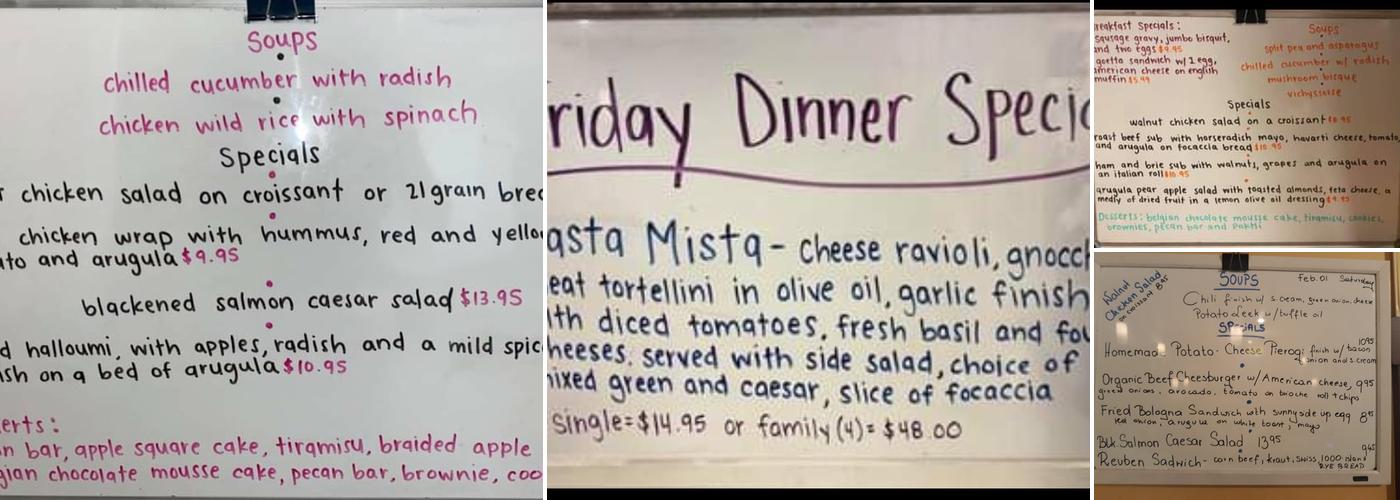 Soups
chilled cucumber with radish
chicken wild rice with spinach
Specials
chicken salad on croissant or 21 grain
chicken wrap with hummus, red and
and arugula $9.95
blackened salmon caesar salad $13.95
halloumi, with apples, radish and a mild
on a bed of arugula $10.95
bar, apple square cake, tiramisu, braided apple
chocolate mousse cake, pecan bar, brownie,
Dinner
Mista - cheese ravioli,
tortellini in olive oil, garlic finish
diced tomatoes, fresh basil and
served with side salad, choice of
green and caesar, slice of focaccia
single=$14.95 or family (4)= $48.00
Specials:
sausage gravy, jumbo bisquit,
and two eggs $9.95
sandwich w/ 1 egg,
american cheese on english
muffin $5.99
Soups
split pea and asparagus
chilled cucumber w/ radish
mushroom bisque
vichyssoise
Specials
walnut chicken salad on a croissant
roast beef sub with horseradish mayo, havarti cheese, tomato,
and arugula on focaccia bread $10.95
ham and brie sub with walnuts, grapes and arugula on
an italian roll $10.95
arugula pear apple salad with toasted almonds, feta cheese, a
medly of dried fruit in a lemon olive oil dressing $9.95
Desserts: belgian chocolate mousse cake, tiramisu, cookies,
brownies, pecan bar and
Walnut
Chicken Salad
on croissant 8.95
SOUPS
Feb. 01 Saturday
Chili finish w/ s.cream, green onion, cheese
Potato Leek w/ tuffle oil
SPECIALS
Homemade Potato-Cheese Pierogi finish w/ bacon 1095
onion and s.cream
Organic Beef Cheesburger w/ American cheese, 995
onions, avocado, tomato on brioche roll + chips
Fried Bologna Sandwich with sunnyside up egg 895
red onion, arugula on white toast, mayo
Blk. Salmon Caesar Salad 1395
Reuben Sadwich - corn beef, kraut, swiss, 1000 island 945
RYE BREAD